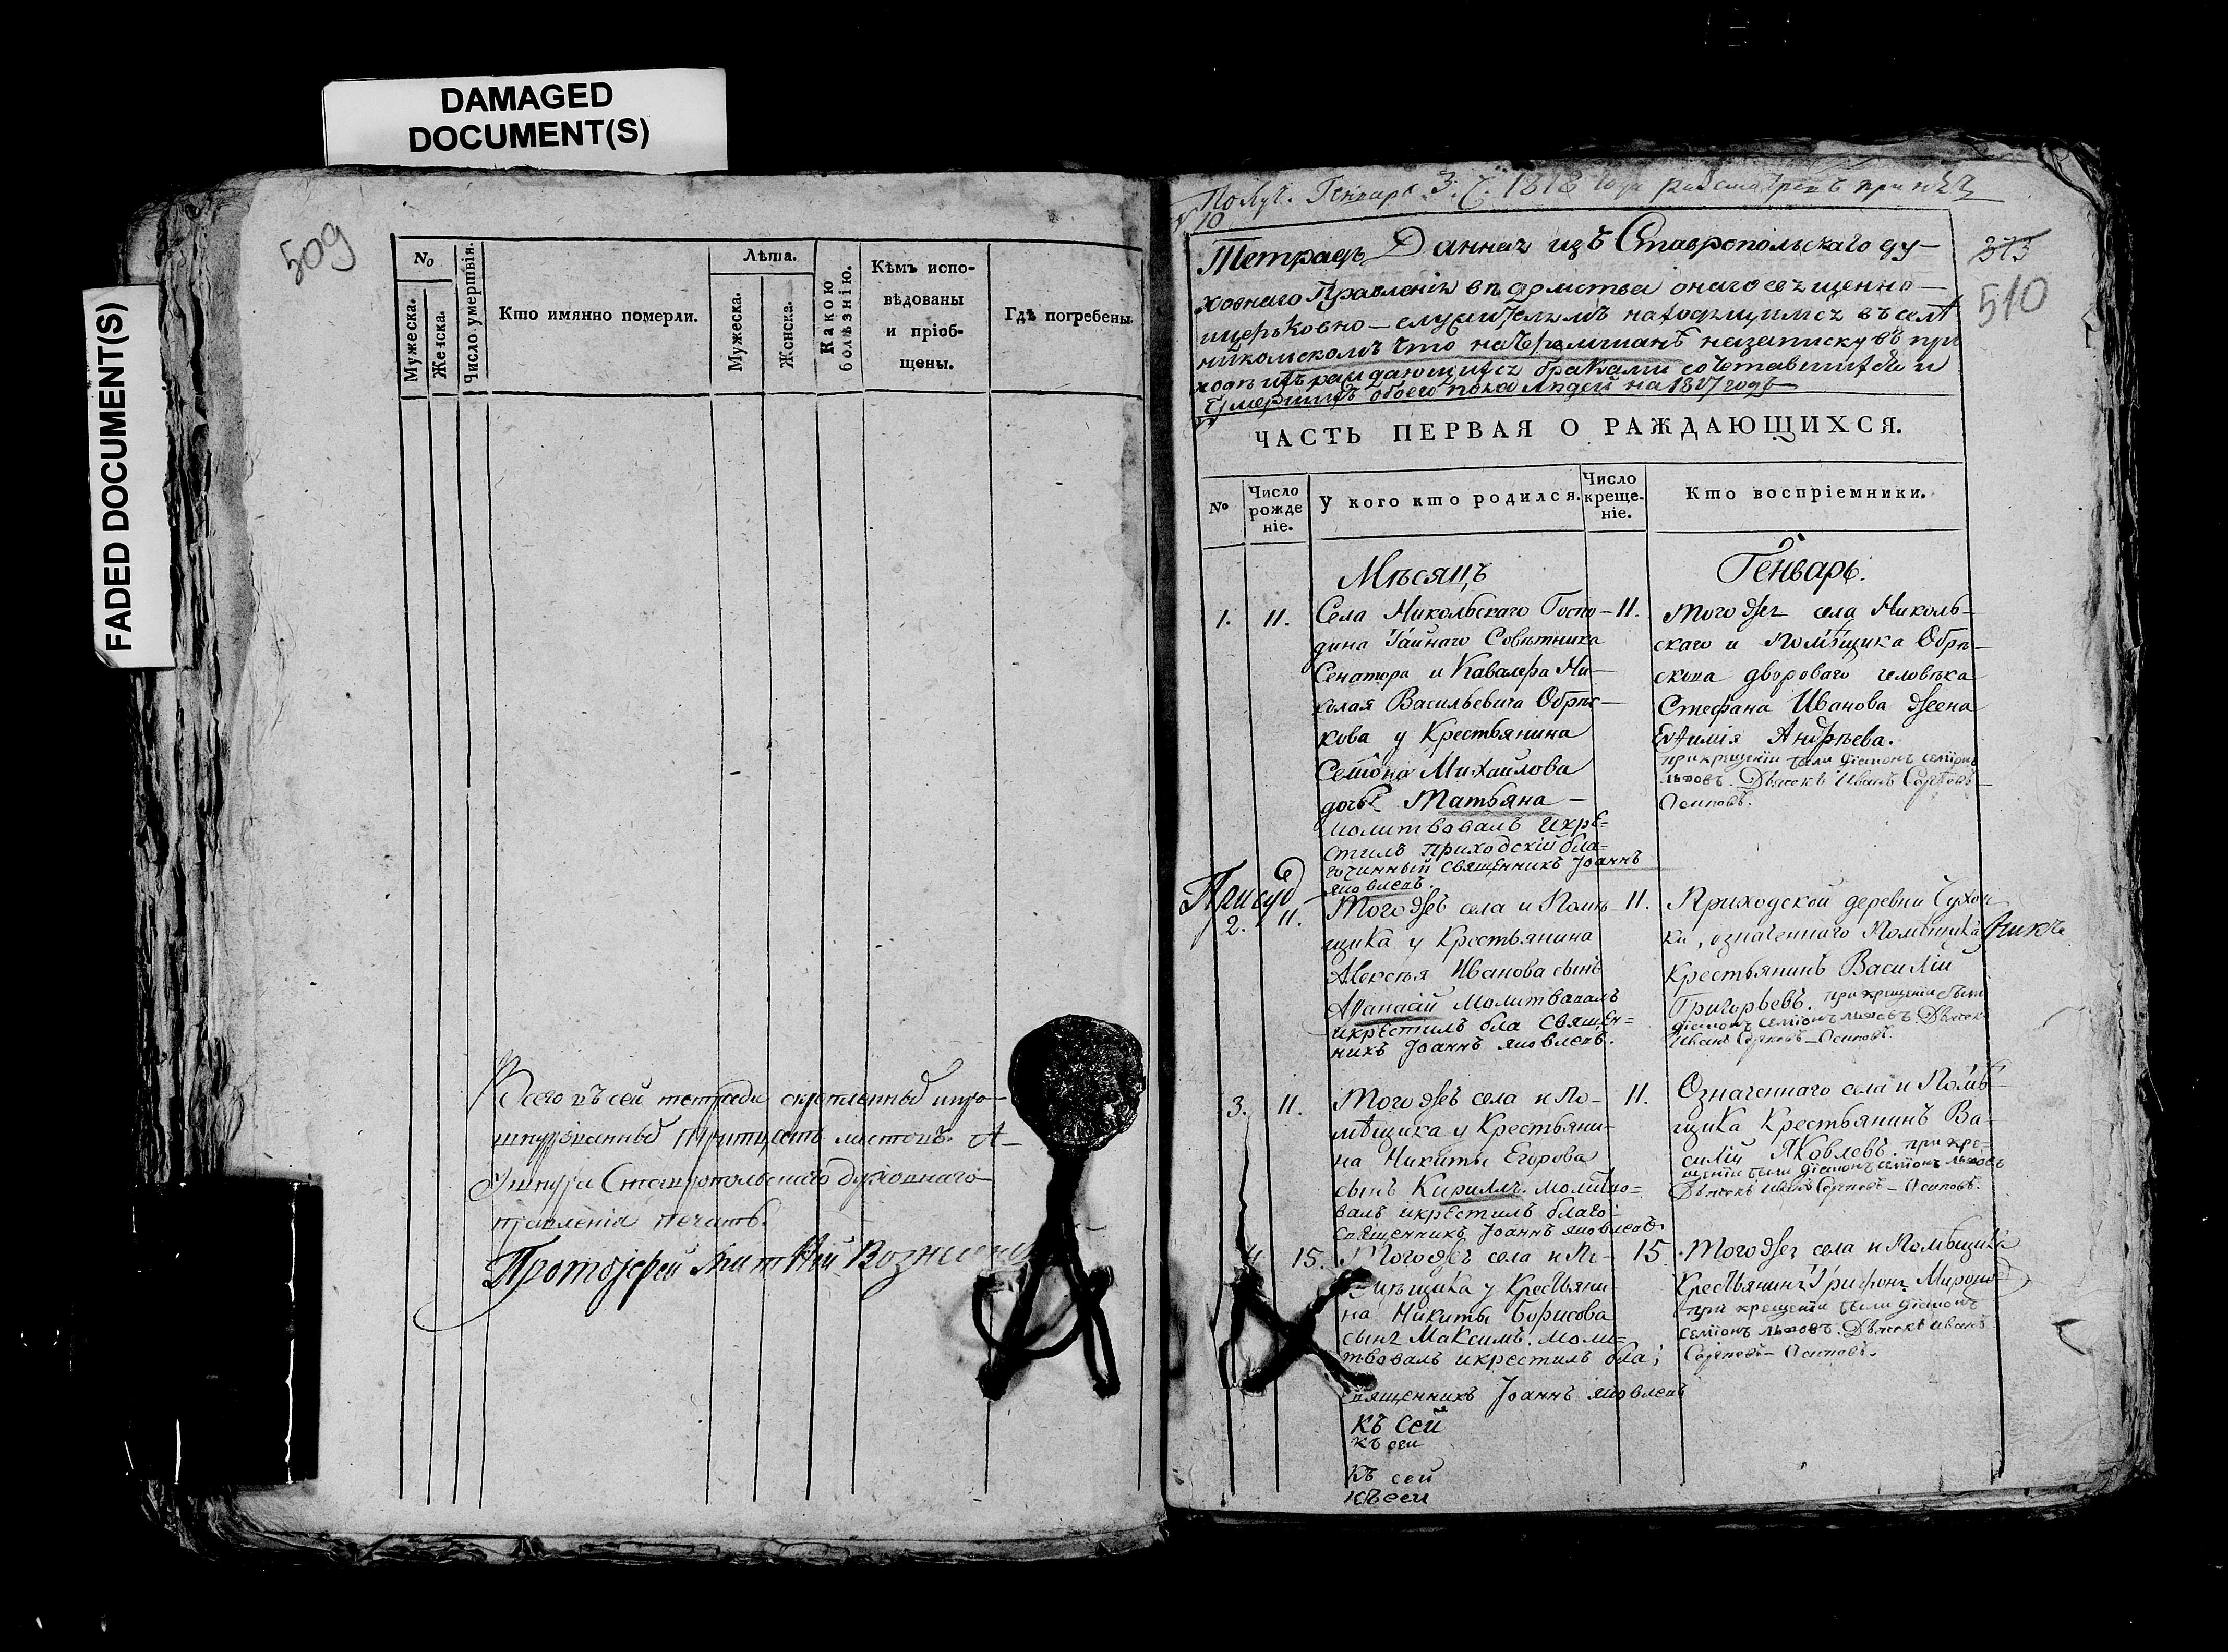 DAMAGED
DOCUMENT(S)
FADED DOCUMENT(S)
509
№
Мужеска.
Женска.
Число умертвія.
Кто имянно померли.
Лѣта.
Мужеска.
Женска.
Какою
болѣзнію.
Кѣмъ испо-
вѣдованы
и пріоб-
щены.
Гдѣ погребены.
Всего въ сей тетради скрепленныхъ
листовъ
Ставропольскаго духовнаго
правленія печать.
Протоіерей
Получ. Генваря 3. ч. 1818 года
10
Тетрадь Данная изъ Ставропольскаго ду-
ховнаго Правленія онаго священно-
церьковно-служителямъ находящимся въ селѣ
никольскомъ что на Черемшанѣ на записку въ при
ходѣ ихъ раждающихся браками сочетавшихся и
Умершихъ обоего пола людей на 1817 годъ
373
510
ЧАСТЬ ПЕРВАЯ О РАЖДАЮЩИХСЯ.
№
Число
рожде
ніе.
У кого кто родился.
Число
креще-
ніе.
Кто воспріемники.
Мѣсяцъ
Генварь.
1. 11.
Села Никольскаго Госпо-
дина Тайнаго Совѣтника
Сенатора и Кавалера Ни-
колая Васильевича Обрѣс-
кова у Крестьянина
Семіона Михайлова
дочь Татьяна -
молитвовалъ икре-
стилъ приходскій бла-
гочинный священникъ Іоаннъ
яковлевъ.
11.
Того жъ села Николь-
скаго и Помѣщика Обрѣ-
скова двороваго человѣка
Стефана Иванова жена
Евѳимія Андрѣева.
при крещеніи были діаконъ семіонъ
львовъ. Дьячекъ Иванъ Сергѣевъ
Осиповъ.
Присуд
2. 11.
Того жъ села и Помѣ-
щика у Крестьянина
Алексѣя Иванова сынъ
Аѳанасій молитвовалъ
икрестилъ бла священ-
никъ Іоаннъ яковлевъ.
11.
Приходской деревни Сухо
ки, означеннаго Помѣщика
Крестьянинъ Василій
Григорьевъ. при крещеніи были
діаконъ семіонъ львовъ. Дьячекъ
Иванъ Сергѣевъ - Осиповъ.
3. 11.
Того жъ села и По-
мѣщика у Крестьяни-
на Никиты Егорова
сынъ Кириллъ. молитво-
валъ икрестилъ благо:
священникъ Іоаннъ яковлевъ.
11.
Означеннаго села и Помѣ-
щика Крестьянинъ Ва-
силій Яковлевъ. при кре-
щеніи были діаконъ семіонъ львовъ
Дьячекъ Иванъ Сергѣевъ - Осиповъ.
4. 15.
Того жъ села и По-
мѣщика у Крестьяни-
на Никиты Борисова
сынъ Максимъ. моли-
твовалъ икрестилъ бла;
священникъ Іоаннъ яковлевъ
15.
Того жъ села и Помѣщика
Крестьянинъ Мироновъ
при крещеніи были діаконъ
семіонъ львовъ. Дьячекъ иванъ
Сергѣевъ - Осиповъ.
къ сей
къ сей
къ сей
къ сей